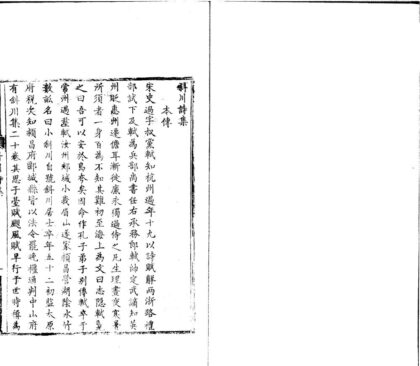 斜川詩集
本傳
宋史過字叔黨軾知杭州過年十九以詩賦解兩浙路禮
部試下及軾為兵部尚書任右承務郎軾帥定武謫知英
州貶惠州遷儋耳漸徙廉永獨過侍之凡生理晝夜寒暑
所須者一身百為不知其難初至海上為文曰志隱軾覽
之曰吾可以安於島夷矣因命作孔子弟子別傳軾卒于
常州過葬軾汝州郟城小峩眉山遂家潁昌營湖陰水竹
數畝名曰小斜川自號斜川居士卒年五十二初監太原
府稅次知潁昌府郾城縣皆以法令罷晚權通判中山府
有斜川集二十卷其思子臺賦颶風賦早行于世時稱為